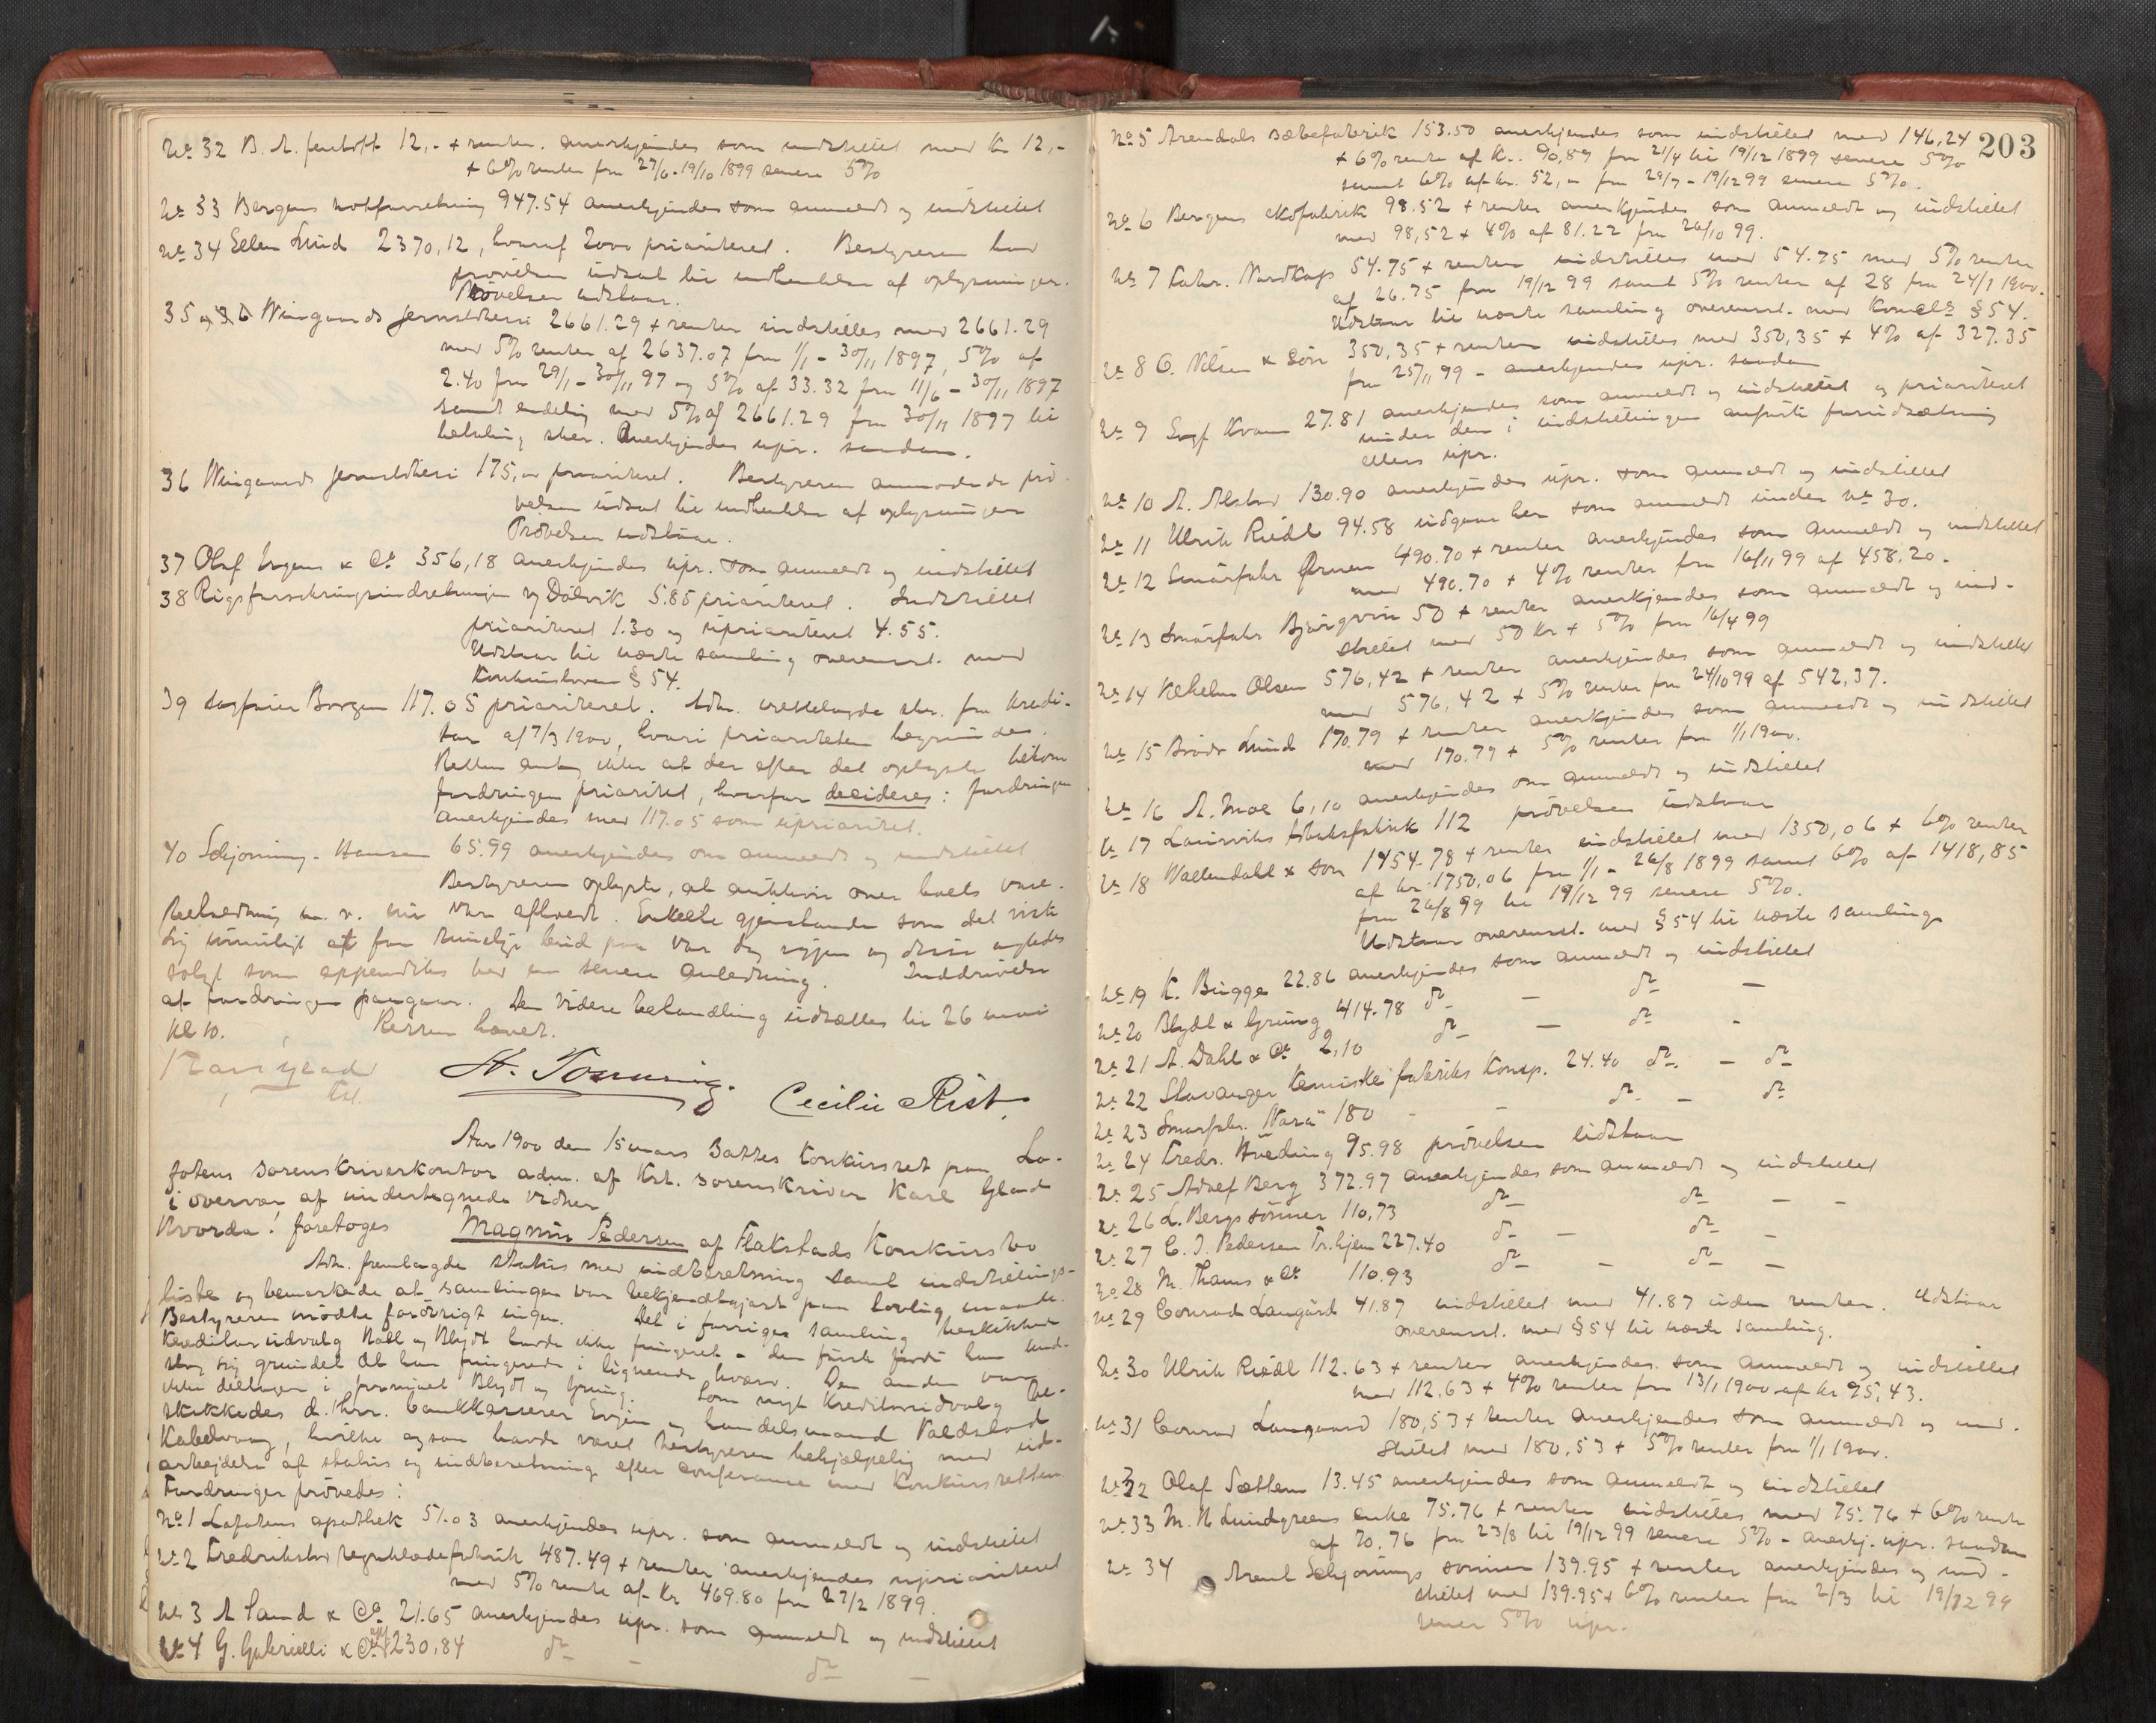 No 32 B. A. 12,- + renter. anerkjendes som indstillet med Kr 12,-
+ 6% renter fra 27/6 - 19/10 1899 senere 5%
No 33 Bergens notforretning 947.54 anerkjendes som anmeldt og indstillet
No 34 Ellen Lund 2370,12, hvoraf 2000 prioriteret. Bestyreren har
prøvelsen udsat til indhentelse af oplysninger.
Prøvelsen udstaar.
35 Wingaards jernstøberi 2661.29 + renter indstilles med 2661.29
med 5% renter af 2637.07 fra 1/1 - 30/11 1897, 5% af
2.40 fra 29/1 - 30/11 97 og 5% af 33.32 fra 11/6 - 30/11 1897
samt endelig med 5% af 2661.29 fra 30/11 1897 til
betaling sker. Anerkjendes upr. saadan.
36 Wingaards jernstøberi 175,00 prioriteret. Bestyreren anmodede prø-
velsen udsat til indhentelse af oplysninger
Prøvelsen udstaar.
37 Olaf & Co 356,18 anerkjendes upr. som anmeldt og indstillet
38 Rigsforsikringsindretningen v/ Dølvik 5.85 prioriteret. Indstillet
prioriteret 1.30 og uprioriteret 4.55.
Udstaar til næste samling overensst. med
Konkursloven § 54.
39 Sagfører Borgen 117.05 prioriteret. Adm. vedtelagde skr. fra kredi-
tor af 7/3 1900, hvori prioriteten begrundes.
Retten antog ikke at der efter det oplyste tilkom
fordringen prioritet, hvorfor decideres: fordringen
anerkjendes med 117.05 som uprioritet.
40 Schjorning-Hansen 65.99 anerkjendes om anmeldt og indstillet
Bestyreren oplyste, at auktion over boets vare-
beholdning m. v. nu var afholdt. Enkelte gjenstande som det viste
sig umuligt at faa rimelige bud paa var dog igjen og disse agtedes
solgt som appendiks ved en senere anledning. Inddrivelse
af fordringer paagaar. Den videre behandling udsættes til 26 mai
kl 10. Retten hævet.
Karl Glad
Kst.
H. Tonning. Cecilie Rist.
Aar 1900 den 15 mars Sattes Konkursret paa Lo-
fotens sorenskriverkontor adm. af Kst. sorenskriver Karl Glad
i overvær af undertegnede vidner
Hvorda! foretoges Magnus Pedersen af Flakstads Konkursbo
Adm. fremlagde status med indberetning samt indstillings-
liste og bemærkede at samlingen var bekjendtgjort paa lovlig maade.
Bestyreren mødte forøvrigt ingen. Det i forrige samling beskikkede
Kreditorudvalg Koll og Blydt havde ikke fungeret - den første fordi han und-
slog sig grundet at han fungerede i lignende hverv. Den anden var
ikke deltager i firmaet Blydt og Grung. Som nyt Kreditorudvalg be-
skikkedes d. Hrr. bankkasserer Evjen og handelsmand Valdstad
Kabelvaag, hvilke ogsaa havde været bestyreren behjælpelig med ud-
arbejdelse af status og indberetning efter conferance med Konkursretten
Fordringer prøvedes:
No 1 Lofotens apothek 51.03 anerkjendes upr. som anmeldt og indstillet
No 2 Fredrikstad regnklædefabrik 487.49 + renter anerkjendes uprioriteret
med 5% rente af Kr 469.80 fra 27/2 1899.
No 3 A Sand & Co 21.65 anerkjendes upr. som anmeldt og indstillet
No 4 G. Gabrielli & Co 230,84 do - do -
203
No 5 Arendals Sæbefabrik 153.50 anerkjendes som indstillet med 146,24
+ 6% rente af Kr. 90,89 fra 21/4 til 19/12 1899 senere 5%
samt 6% af kr. 52,00 fra 29/7 - 19/12 99 senere 5%.
No 6 Bergens skofabrik 98.52 + renter anerkjendes som anmeldt og indstillet
med 98,52 + 4% af 81.22 fra 26/10 99.
No 7 Fabr. Nordkap 54.75 + renter indstilles med 54.75 med 5% renter
af 26.75 fra 19/12 99 samt 5% renter af 28 fra 24/1 1900.
Udstaar til næste samling overensst. med Konclo § 54.
No 8 O. Nilsen & Søn 350,35 + renter indstilles med 350,35 + 4% af 327.35
fra 25/11 99 - anerkjendes upr. saadan
No 9 Sagf Kvam 27.81 anerkjendes som anmeldt og indstillet og prioriteret
under den i indstillingen anførte forudsætning
ellers upr.
No 10 A. Alstad 130.90 anerkjendes upr. som anmeldt og indstillet
No 11 Ulrik Riedl 94.58 udgaar her som anmeldt under No 30.
No 12 Smørfabr Ørnen 490.70 + renter anerkjendes som anmeldt og indstillet
med 490.70 + 4% renter fra 16/11 99 af 458.20.
No 13 Smørfabr Bjørgvin 50 + renter anerkjendes som anmeldt og ind-
stillet med 50 Kr + 5% fra 16/4 99
No 14 Vilhelm Olsen 576,42 + renter anerkjendes som anmeldt og indstillet
med 576,42 + 5% renter fra 24/10 99 af 542,37.
No 15 Brødr Lund 170.79 + renter anerkjendes som anmeldt og indstillet
med 170.79 + 5% renter fra 1/1 1900.
No 16 A. Moe 6,10 anerkjendes om anmeldt og indstillet
No 17 Laurviks tobaksfabrik 112 prøvelsen udstaar
No 18 Wallendahl & søn 1454.78 + renter indstillet med 1350,06 + 6% renter
af kr. 1750,06 fra 1/1 - 26/8 1899 samt 6% af 1418,85
fra 26/8 99 til 19/12 99 senere 5%.
Udstaar overensst. med § 54 til næste samling
No 19 K. Bugge 22.86 anerkjendes som anmeldt og indstillet
No 20 Blydt & Grung 414.78 do - do -
No 21 A. Dahl & Co 2,10 do - do -
No 22 Stavanger kemiske fabriks Komp. 24.40 do - do
No 23 Smørfabr. "Nora" 180 - - do - do
No 24 Fredr. Hveding 95.98 prøvelsen udstaar
No 25 Adolf Berg 372.97 anerkjendes som anmeldt og indstillet
No 26 L. Bergs sønner 110,73 do do - -
No 27 C. J. Pedersen Tr.hjem 227.40 do - do -
No 28 M. Thams & Co 110.93 do - do -
No 29 Conrad Langaard 41.87 indstillet med 41.87 uden renter. Udstaar
overensst. med § 54 til næste samling.
No 30 Ulrik Riedl 112.63 + renter anerkjendes som anmeldt og indstillet
med 112.63 + 4% renter fra 13/1 1900 af kr 95,43.
No 31 Conrad Langaard 180,53 + renter anerkjendes som anmeldt og ind-
stillet med 180,53 + 5% renter fra 1/1 1900.
No 32 Olaf Sættem 13.45 anerkjendes som anmeldt og indstillet
No 33 M. H Lundgreens enke 75.76 + renter indstilles med 75.76 + 6% rente
af 70.76 fra 23/8 til 19/12 99 senere 5% - anerkj. upr. saadan
No 34 Arent Schjørnings sønner 139.95 + renter anerkjendes og ind-
stillet med 139.95 + 6% renter fra 2/3 til 19/12 99
senere 5% upr.